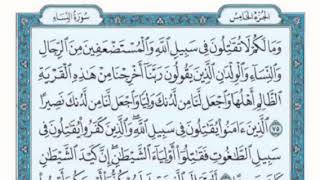 الجزء الخامس سورة النساء
وَمَا لَكُمْ لَا تُقَٰتِلُونَ فِى سَبِيلِ ٱللَّهِ وَٱلْمُسْتَضْعَفِينَ مِنَ ٱلرِّجَالِ
وَٱلنِّسَآءِ وَٱلْوِلْدَٰنِ ٱلَّذِينَ يَقُولُونَ رَبَّنَآ أَخْرِجْنَا مِنْ هَٰذِهِ ٱلْقَرْيَةِ
ٱلظَّالِمِ أَهْلُهَا وَٱجْعَل لَّنَا مِن لَّدُنكَ وَلِيًّا وَٱجْعَل لَّنَا مِن لَّدُنكَ نَصِيرًا
٧٥ ٱلَّذِينَ ءَامَنُوا۟ يُقَٰتِلُونَ فِى سَبِيلِ ٱللَّهِ وَٱلَّذِينَ كَفَرُوا۟ يُقَٰتِلُونَ فِى
سَبِيلِ ٱلطَّٰغُوتِ فَقَٰتِلُوٓا۟ أَوْلِيَآءَ ٱلشَّيْطَٰنِ إِنَّ كَيْدَ ٱلشَّيْطَٰنِ